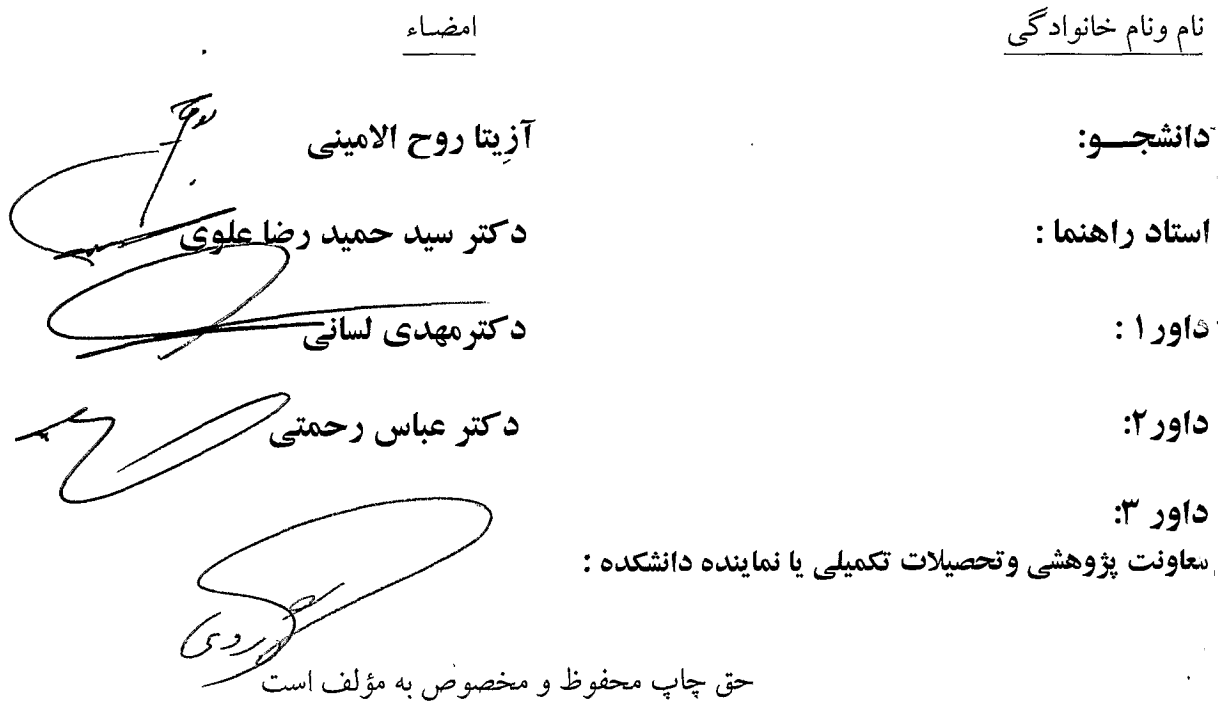 نام ونام خانوادگی امضاء
دانشجــو: آزیتا روح الامینی
استاد راهنما : دکتر سید حمید رضا علوی
داور ۱ : دکترمهدی لسانی
داور۲: دکتر عباس رحمتی
داور ۳:
معاونت پژوهشی وتحصیلات تکمیلی یا نماینده دانشکده :
حق چاپ محفوظ و مخصوص به مؤلف است